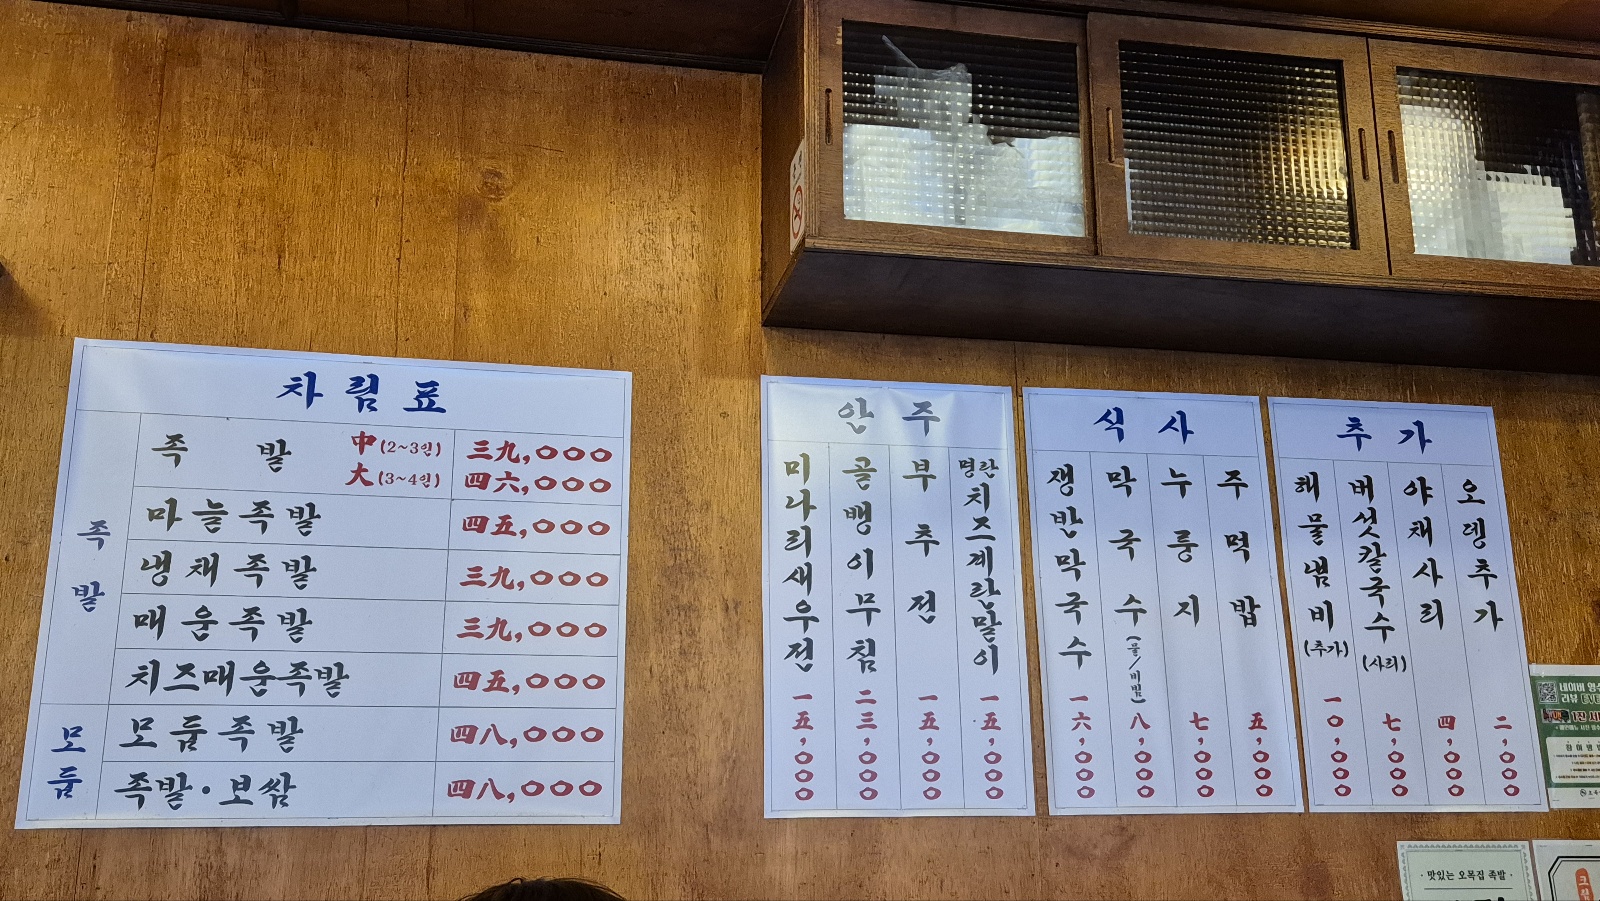 차림표
족발
족발 中(2~3인) 三九,○○○
大(3~4인) 四六,○○○
마늘족발 四五,○○○
냉채족발 三九,○○○
매운족발 三九,○○○
치즈매운족발 四五,○○○
모듬
모듬족발 四八,○○○
족발·보쌈 四八,○○○
안주
미나리새우전 一五,○○○
골뱅이무침 二三,○○○
부추전 一五,○○○
명란치즈계란말이 一五,○○○
식사
쟁반막국수 一六,○○○
막국수(물/비빔) 八,○○○
누룽지 七,○○○
주먹밥 五,○○○
추가
해물냄비(추가) 一○,○○○
버섯칼국수(사리) 七,○○○
야채사리 四,○○○
오뎅추가 二,○○○
네이버 영수
리뷰 EVE
참여방
·맛있는 오목집 족발·